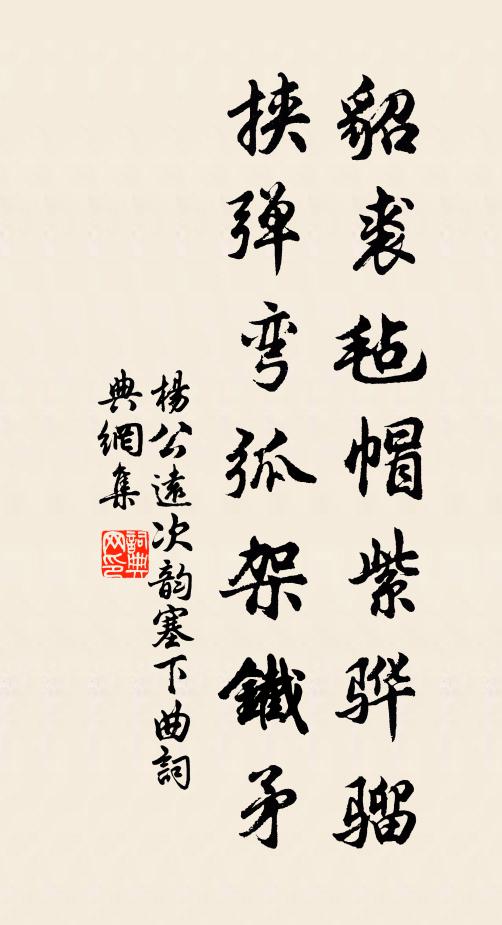 貂裘毡帽紫骅骝
挟弹弯弧架鐵矛
楊公遠次韵塞下曲詞
典網集
詞典网印